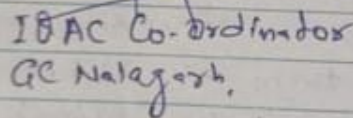 IQAC Co-ordinator
GC Nalagarh.